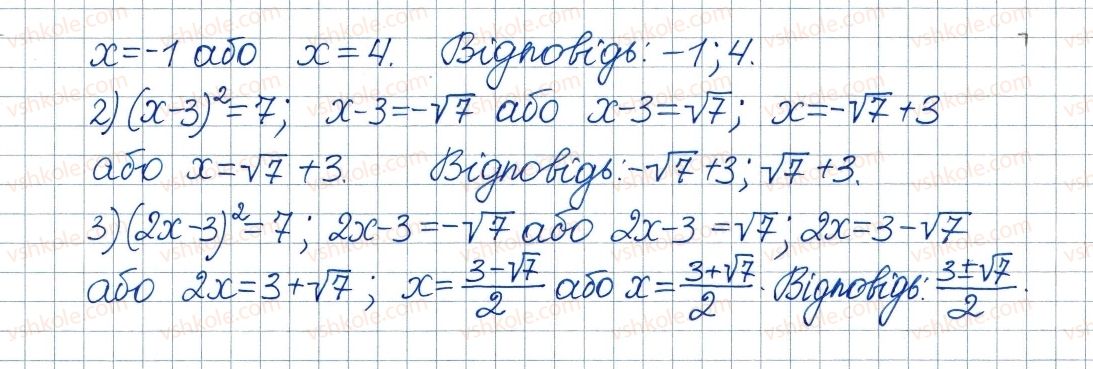 x=-1 або x=4. Відповідь: -1; 4.
2) (x-3)²=7; x-3=-√7 або x-3=√7; x=-√7+3
або x=√7+3. Відповідь: -√7+3; √7+3.
3) (2x-3)²=7; 2x-3=-√7 або 2x-3=√7; 2x=3-√7
або 2x=3+√7; x=(3-√7)/2 або x=(3+√7)/2. Відповідь: (3±√7)/2.